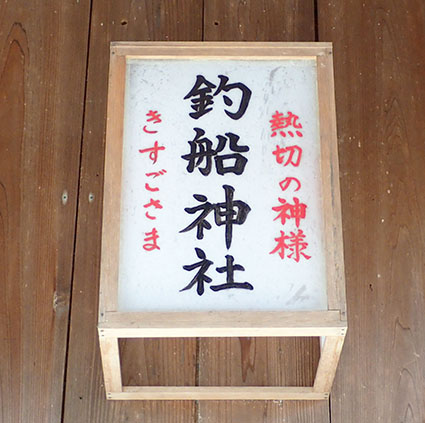 熱切の神様
釣船神社
きすごさま